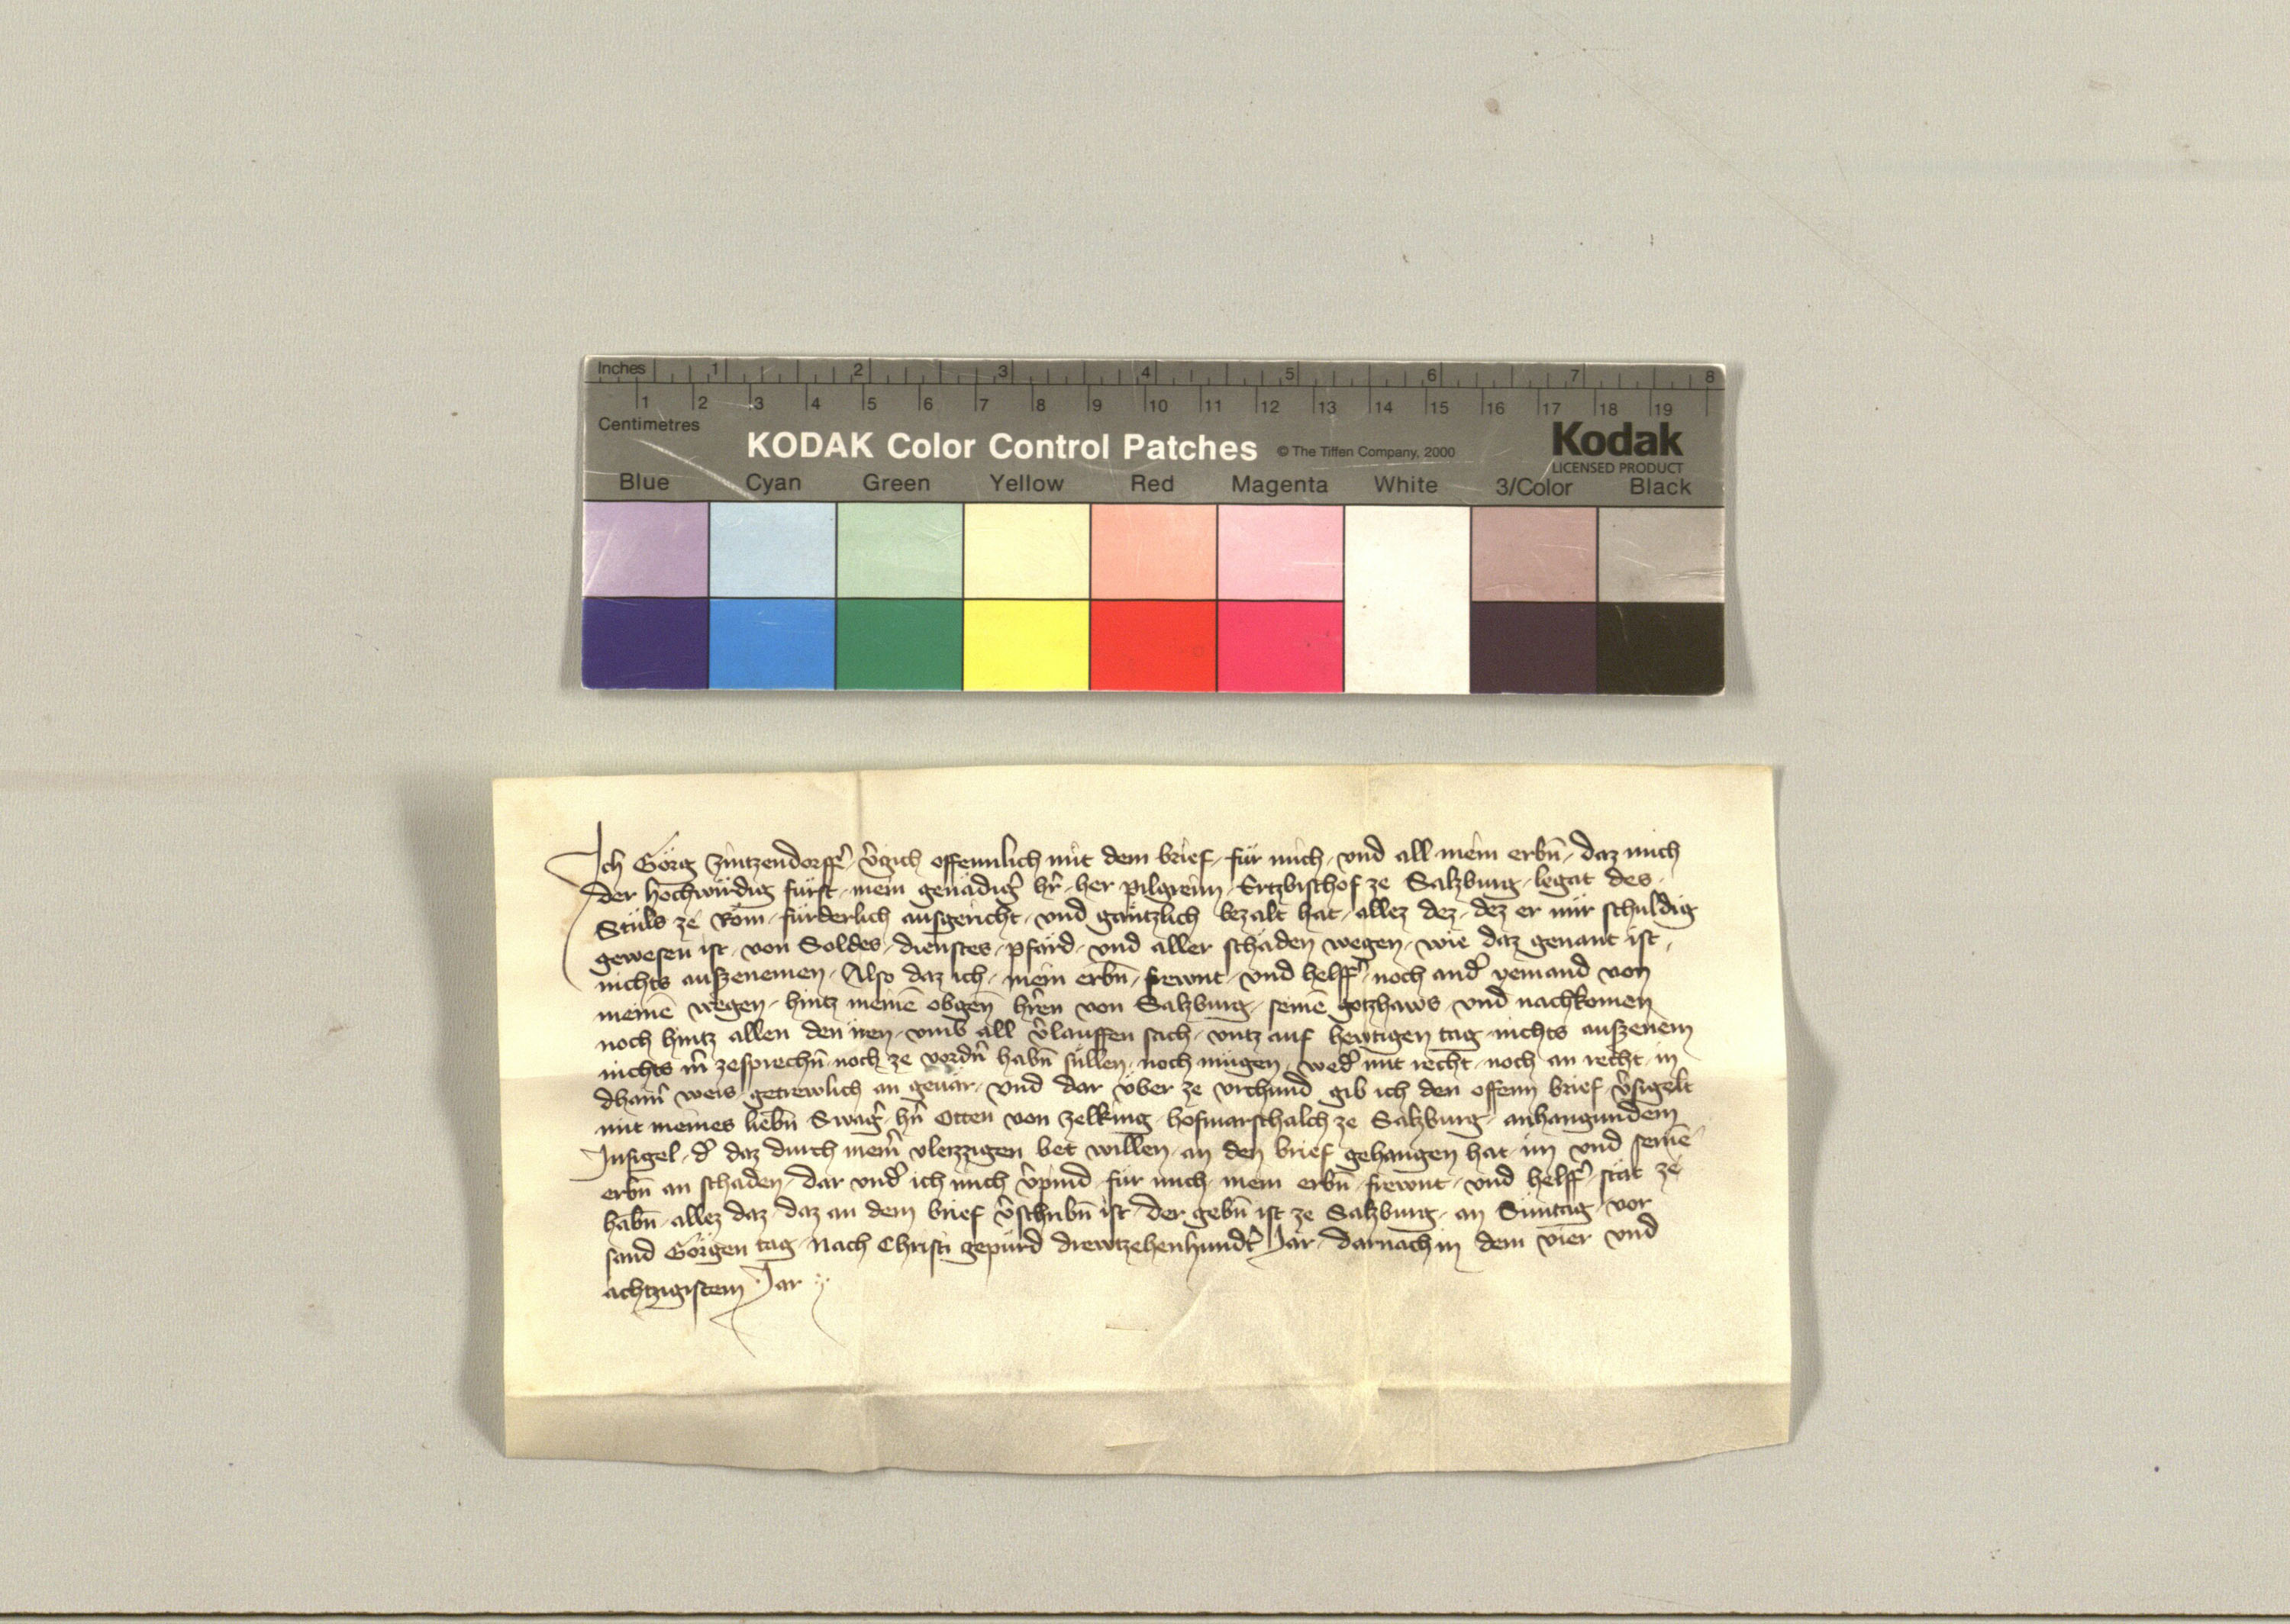 Inches 1 2 3 4 5 6 7 8
1 2 3 4 5 6 7 8 9 10 11 12 13 14 15 16 17 18 19
Centimetres
KODAK Color Control Patches © The Tiffen Company, 2000 Kodak
LICENSED PRODUCT
Blue Cyan Green Yellow Red Magenta White 3/Color Black
Ich Görg Zintzendorff̉ v̉gich offennlich mit dem brief für mich und all mein erbn̄ daz mich
der hochwürdig fürst mein genädig̉ hr̉ her Pilgreim Ertzbischof ze Salzburg legat des
Stůls ze Rom fürderlich ausgericht und gäntzlich bezalt hat allez dez dez er mir schuldig
gewesen ist von Soldes dienstes pfärd und aller schäden wegen wie daz genant ist
nichts auszenemen Also daz ich mein erbn̄ frewnt und helff̉ noch and̉ yemand von
meinē wegen hintz meinē obgen̄ hr̉en von Salzburg seinē gotzhaws und nachkomen
noch hintz allen den iren umb all v̉lauffen sach untz auf hewtigen tag nichts auszenem
nichts m̉ zesprechn̄ noch ze vordn̉ habn̄ süllen noch mügen wed̉ mit recht noch an recht in
dhain̉ weis getrewlich an geuär und dar über ze urchund gib ich den offenn brief v̉sigelt
mit meines liebn̄ Swag̉ hn̉ Otten von Zelking hofmarschalch ze Salzburg anhangundem
Insigel d̉ daz durch mein̉ vleizzigen bet willen an den brief gehangen hat im und seinē
erbn̄ an schaden dar und̉ ich mich v̉pind für mich mein erbn̄ frewnt und helff̉ stät ze
habn̄ allez daz daz an dem brief v̉schribn̄ ist der gebn̄ ist ze Salzburg an Suntag vor
sand Görgen tag Nach Christi gepürd drewtzehenhundt̉ Jar darnach in dem vier und
achtzigistem Jar